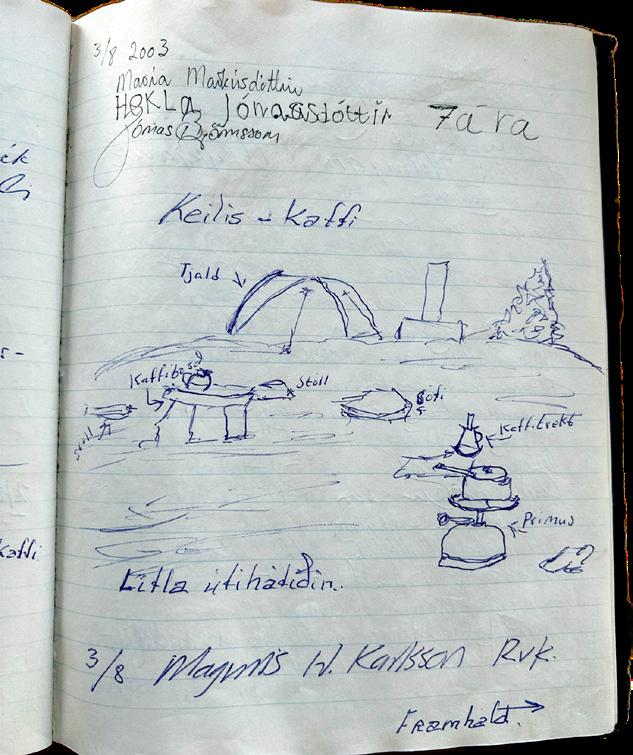 3/8 2003
María Markúsdóttir
HEKLA Jónasdóttir 7ára
Jónas Björnsson
Keilis - kaffi
Tjald
Kaffiborð
Stóll
Stóll
Kaffitrekt
Primus
Litla útihátíðin.
3/8 Magnús H. Karlsson Rvk.
Framhald.
kaffi